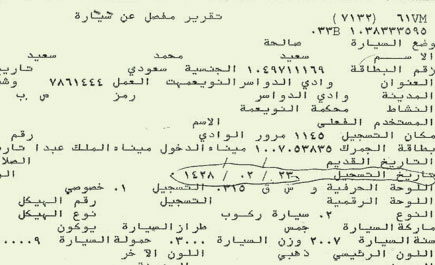 تقرير مفصل عن سيارة
(٧١٣٢) ٦١٧M
٠٣٣B ١٠٣٨٣٣٣٥٩٥
وضع السيارة صالحة
الاسم سعيد محمد سعيد
رقم البطاقة ١٠٤٩٧١١١٦٩ الجنسية سعودي تاريخ
العنوان وادي الدواسر النويعمه ت العمل ٧٨٦١٤٤٤
المدينة وادي الدواسر رمز ص ب
النشاط محكمة النويعمة
المستخدم الفعلى الاسم
مكان التسجيل ١١٤٥ مرور الوادي رقم
بطاقة الجمرك ١٠٠٧٠٥٣٨٣٥ ميناء الدخول ميناء الملك عبدا
التاريخ القديم / /
تاريخ التسجيل ٢٣ / ٠٢ / ١٤٢٨
اللوحة الحرفية و س ق ٣١٥٠ التسجيل ١. خصوصي
اللوحة الرقمية التسجيل رقم الهيكل
النوع ٢. سيارة ركوب نوع الهيكل
ماركة السيارة جمس طراز السيارة يوكون
سنة السيارة ٢٠٠٧ وزن السيارة ٠٣٠٠٠ حمولة السيارة ٠٠٠٠٩
اللون الرئيسي ذهبي اللون الآخر